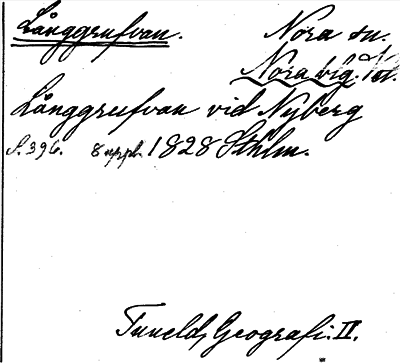 Långgrufvan. Nora sn.
Nora blg. Vstl.
Långgrufvan vid Nyberg
s. 396. 8 uppl. 1828 Sthlm.
Tunelds Geografi. II.